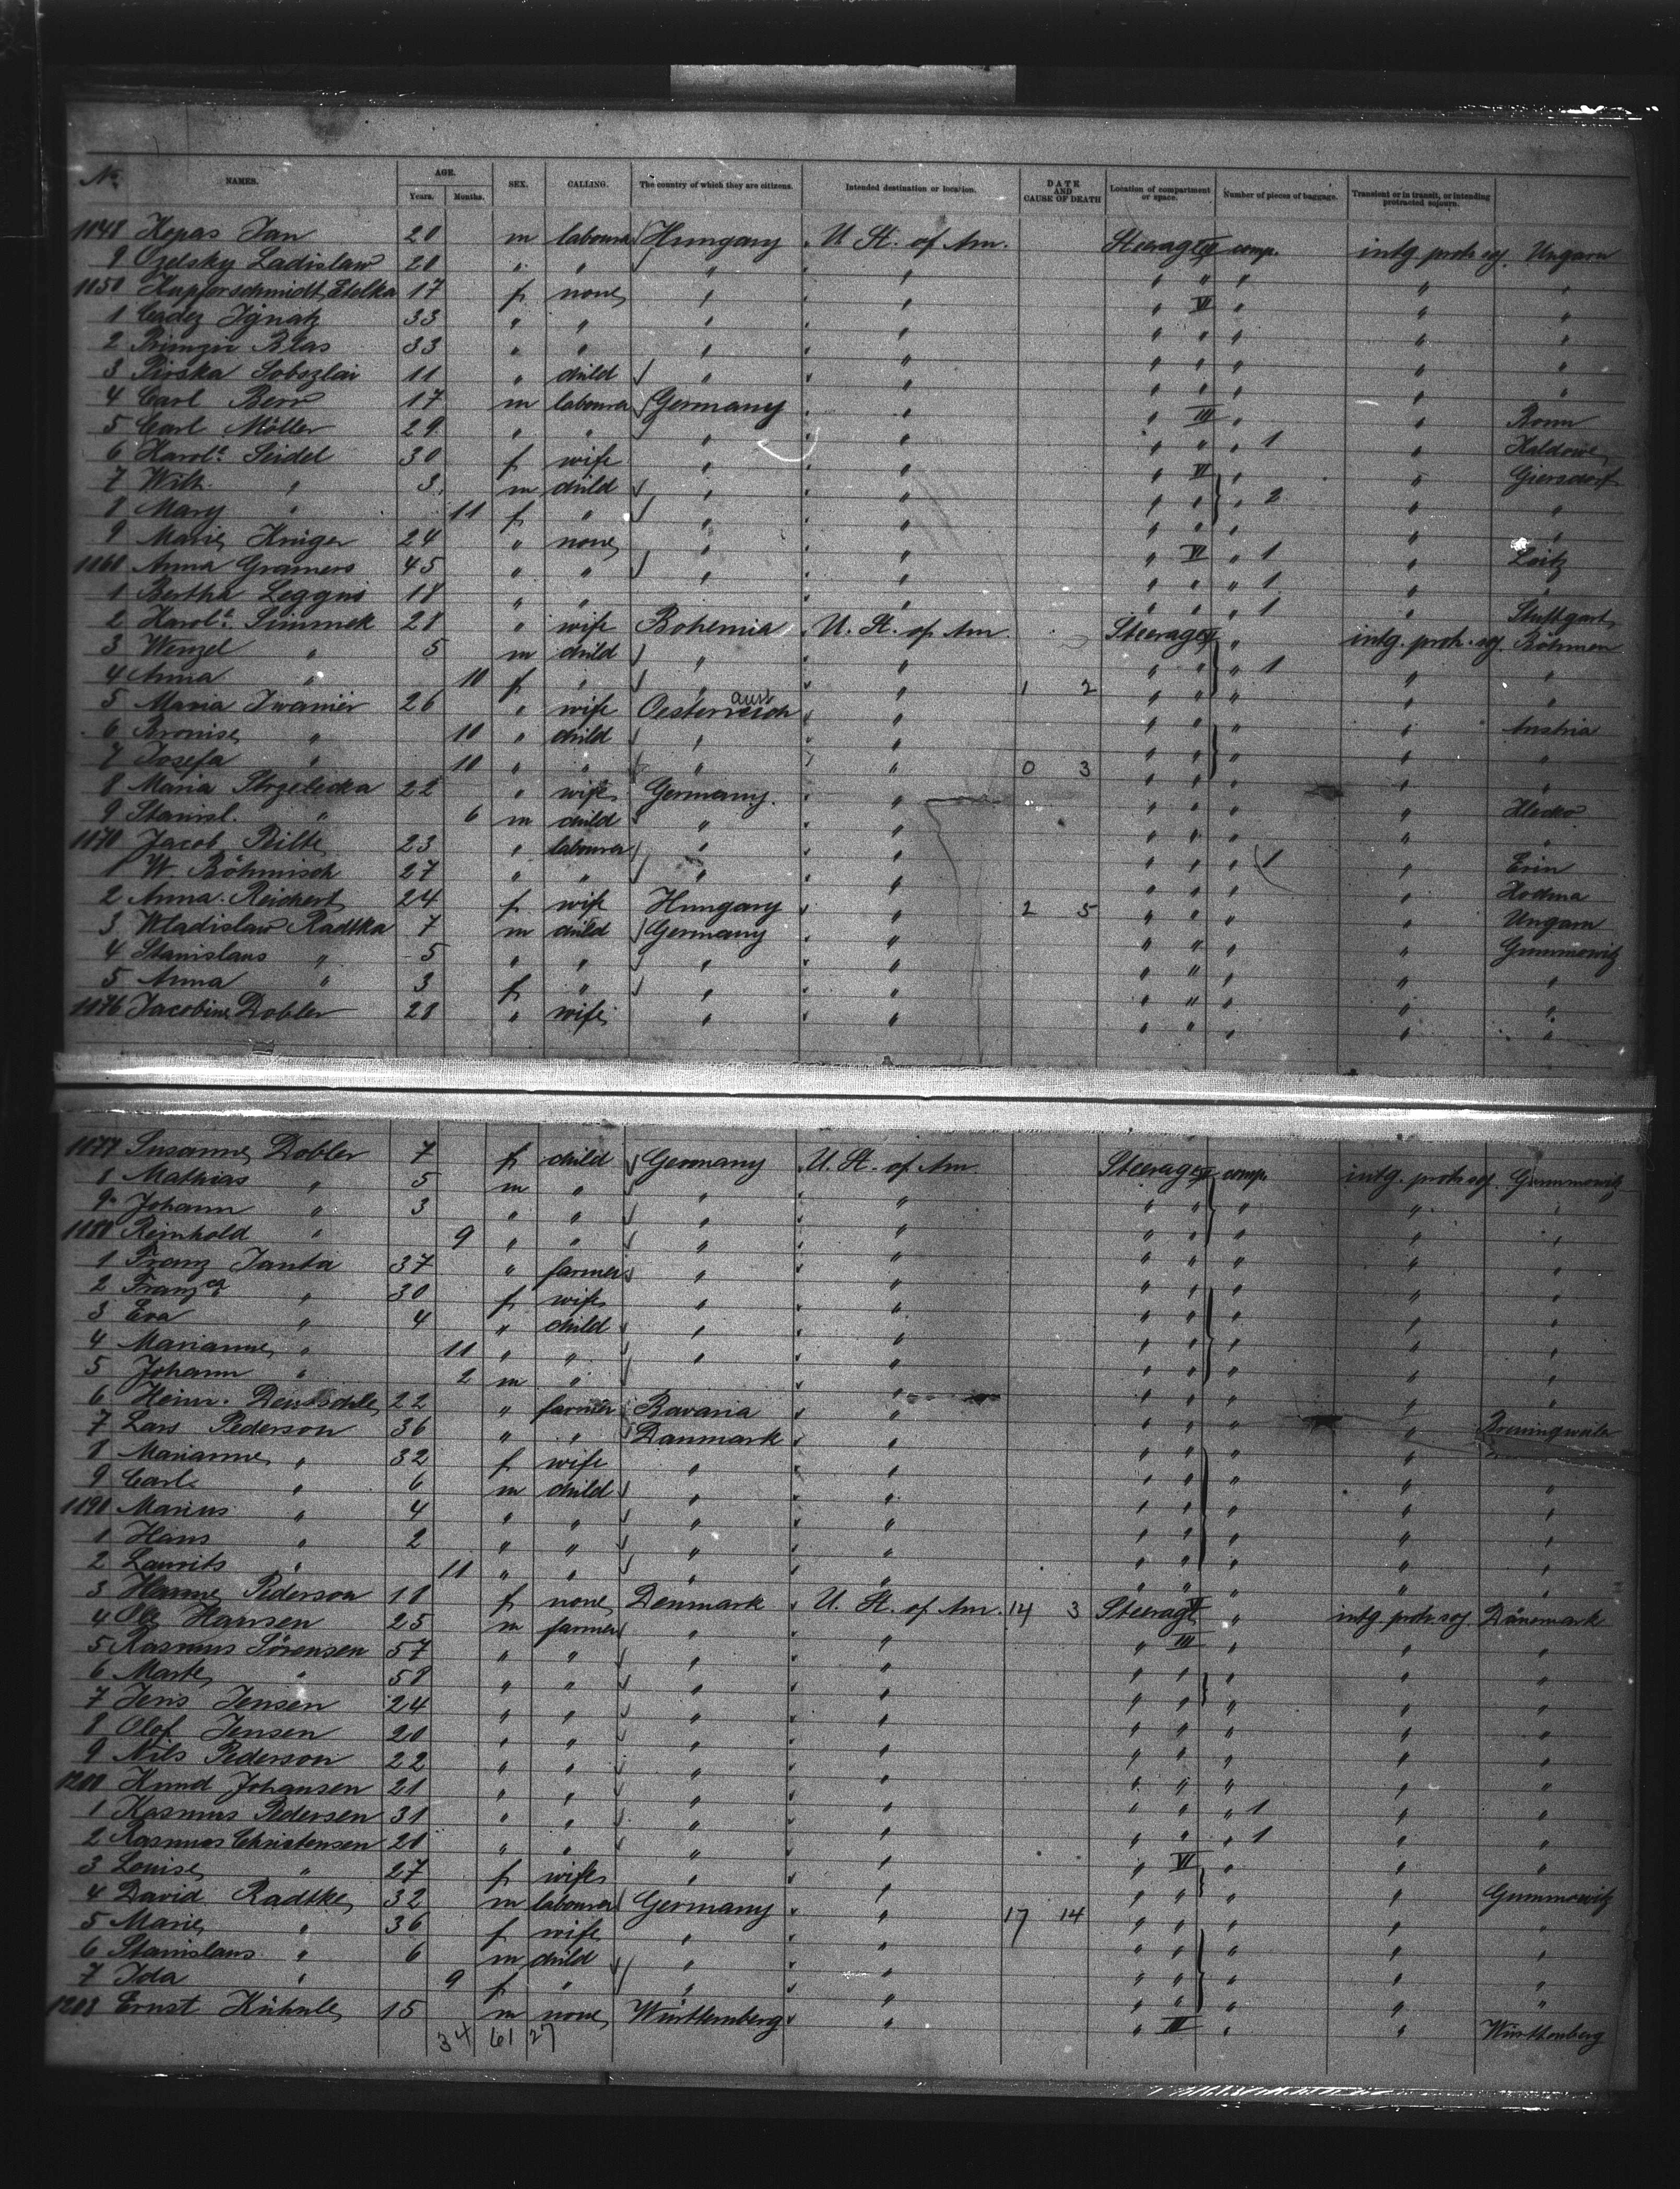 No. NAMES. AGE. Years. Months. SEX. CALLING. The country of which they are citizens. Intended destination or location. DATE AND CAUSE OF DEATH Location of compartment or space. Number of pieces of baggage. Transient or in transit, or intending protracted sojourn.
1148 Kopas Jan 20 m labourer Hungary U. St. of Am. Steerage comp. intg. protr. soj. Ungarn
9 Ozelsky Ladislaw 20 " " " " " " " " "
1150 Kupferschmidt Etelka 17 f none " " " VI " " "
1 Cadez Ignatz 33 " " " " " " " " "
2 Primzir Blas 33 " " " " " " " " "
3 Piroska Soboszlai 11 " child " " " " " " "
4 Carl Berr 17 m labourer Germany " " III " " Bonn
5 Carl Möller 29 " " " " " " " 1 " Kaldowe
6 Karola Seidel 30 f wife " " " VI " " Giersdorf
7 Wilh. " 3 m child " " " " " 2 " "
8 Mary " 11 f " " " " " " " "
9 Marie Krüger 24 " none " " " VI " 1 " Loitz
1160 Anna Gramers 45 " " " " " " " 1 " "
1 Bertha Leggus 18 " " " " " " " 1 " Stuttgart
2 Karola Simmek 28 " wife Bohemia U. St. of Am. Steerage " intg. protr. soj. Böhmen
3 Wenzel " 5 m child " " " " " 1 " "
4 Anna " 10 f " " " 1 2 " " " " "
5 Maria Iwanier 26 " wife Oesterreich aust " " " " " Austria
6 Bronise " 10 " child " " " " " " "
7 Josefa " 10 " " " " 0 3 " " " " "
8 Maria Strzelecka 22 " wife Germany " " " " " Klecko
9 Stanisl. " 6 m child " " " " " " "
1170 Jacob Bilte 23 " labourer " " " " " 1 " Erin
1 W. Böhmisch 27 " " " " " " " " Hodma
2 Anna Reichert 24 f wife Hungary " 2 5 " " " " Ungarn
3 Wladislaw Radtka 7 m child Germany " " " " " Gummowitz
4 Stanislaus " 5 " " " " " " " " "
5 Anna " 3 f " " " " " " " "
1176 Jacobine Dobler 28 " wife " " " " " " "
1177 Susanne Dobler 7 f child Germany U. St. of Am. Steerage comp. intg. protr. soj. Gummowitz
8 Mathias " 5 m " " " " " " " "
9 Johann " 3 " " " " " " " " "
1180 Reinhold " 9 " " " " " " " " "
1 Franz Janta 37 " farmer " " " " " " "
2 Franzca " 30 f wife " " " " " " "
3 Eva " 4 " child " " " " " " "
4 Marianne " 11 " " " " " " " " "
5 Johann " 2 m " " " " " " " "
6 Heinr. 22 " farmer Bavaria " " " " "
7 Lars Pederson 36 " " Danmark " " " " "
8 Marianne " 32 f wife " " " " " " "
9 Carl " 6 m child " " " " " " "
1190 Marius " 4 " " " " " " " " "
1 Hans " 2 " " " " " " " " "
2 Laurits " 11 " " " " " " " " "
3 Hanne Pederson 18 f none Denmark U. St. of Am. 14 3 Steerage " intg. protr. soj. Dänemark
4 Ole Hansen 25 m farmer " " " III " " "
5 Rasmus Sörensen 57 " " " " " " " " "
6 Marte " 58 " " " " " " " " "
7 Jens Jensen 24 " " " " " " " " "
8 Olof Jensen 20 " " " " " " " " "
9 Nils Pederson 22 " " " " " " " " "
1200 Knud Johansen 21 " " " " " " " " "
1 Rasmus Pedersen 31 " " " " " " " 1 " "
2 Rasmus Christensen 20 " " " " " " " 1 " "
3 Louise " 27 f wife " " " VI " " "
4 David Radtke 32 m labourer Germany " 17 14 " " " " Gummowitz
5 Marie " 36 f wife " " " " " " "
6 Stanislaus " 6 m child " " " " " " "
7 Ida " 9 f " " " " " " " "
1208 Ernst Kühnle 15 m none Württemberg " " III " " Württemberg
34 61 27